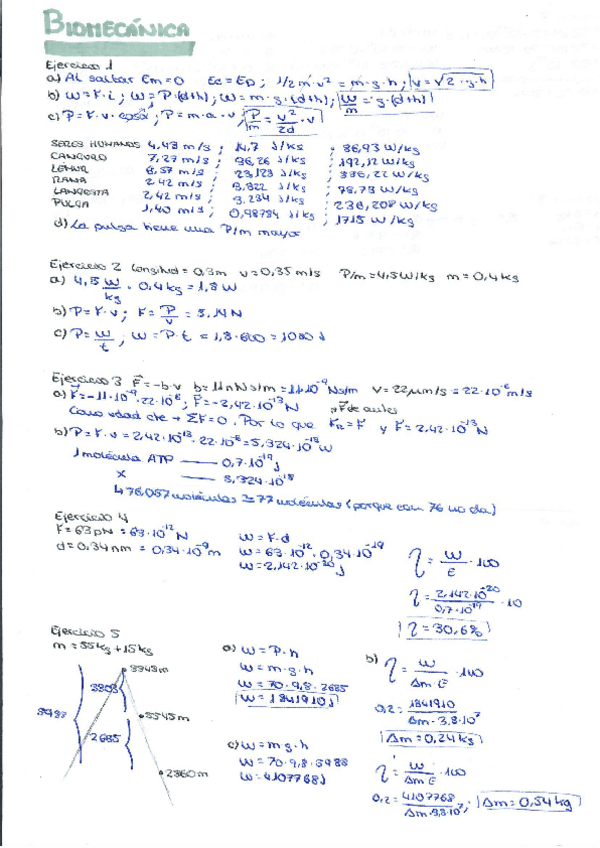 BIOMECÁNICA
Ejercicio 1
a) Al saltar Em=0 Ec=Ep; 1/2 m·v² = m·g·h; v=√2·g·h
b) W=F·i; W=P·(d+h); W=m·g·(d+h); W/m = g·(d+h)
c) P=F·v·cosα; P=m·a·v; P/m = v²/2d · v
SERES HUMANOS 4,43 m/s ; 14,7 J/kg ; 36,93 W/kg
CANGURO 7,27 m/s ; 36,26 J/kg ; 192,12 W/kg
LÉMUR 6,57 m/s ; 23,128 J/kg ; 336,22 W/kg
RANA 2,42 m/s ; 3,822 J/kg ; 78,73 W/kg
LANGOSTA 2,42 m/s ; 3,234 J/kg ; 236,208 W/kg
PULGA 1,40 m/s ; 0,98784 J/kg ; 1715 W/kg
d) La pulga tiene una P/m mayor
Ejercicio 2 Longitud = 0,3m v=0,35 m/s P/m=4,5W/kg m=0,4kg
a) 4,5 W/kg · 0,4kg = 1,8 W
b) P=F·v; F= P/v = 5,14N
c) P= W/t ; W=P·t = 1,8·600 = 1080 J
Ejercicio 3 F=-b·v b=11nNs/m=11·10⁻⁹Ns/m v=22μm/s=22·10⁻⁶m/s
a) F=-11·10⁻⁹·22·10⁻⁶; F=-2,42·10⁻¹³N
Como vdad cte → ΣF=0. Por lo que FR=F y F=2,42·10⁻¹³N
b) P=F·v=2,42·10⁻¹³·22·10⁻⁶=5,324·10⁻¹⁸W
1 molécula ATP —— 0,7·10⁻¹⁹J
X —— 5,324·10⁻¹⁸
76,057 moléculas ≃ 77 moléculas (porque con 76 no da)
Ejercicio 4
F=63pN=63·10⁻¹²N
d=0,34nm = 0,34·10⁻⁹m
W=F·d
W=63·10⁻¹²·0,34·10⁻¹⁹
W=2,142·10⁻²⁰J
η = W/E ·100
η = 2,142·10⁻²⁰/0,7·10⁻¹⁹ ·10
η=30,6%
Ejercicio 5
m=55kg+15kg
3545m
2685
2860m
a) W=P·h
W=m·g·h
W=70·9,8·2685
W=1841910J
b) η = W/Δm E ·100
0,2= 1841910/Δm·3,8·10⁷
Δm=0,24kg
c) W=mgh
W=70·9,8·5988
W=4107768J
η = W/Δm E ·100
0,2= 4107768/Δm·3,8·10⁷; Δm=0,54kg